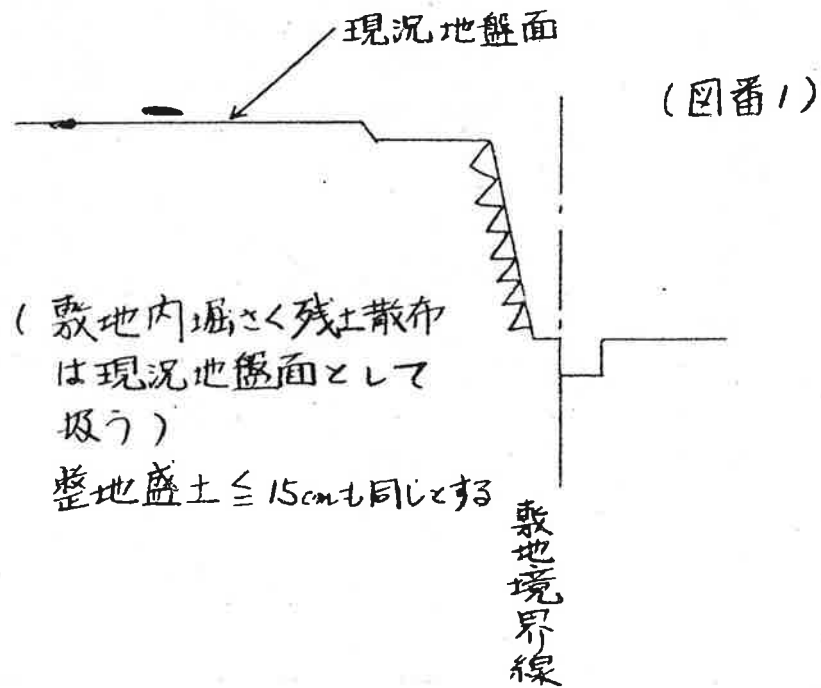 現況地盤面
(図番1)
(敷地内堀さく残土散布
は現況地盤面として
扱う)
整地盛土≦15cmも同じとする
敷地境界線